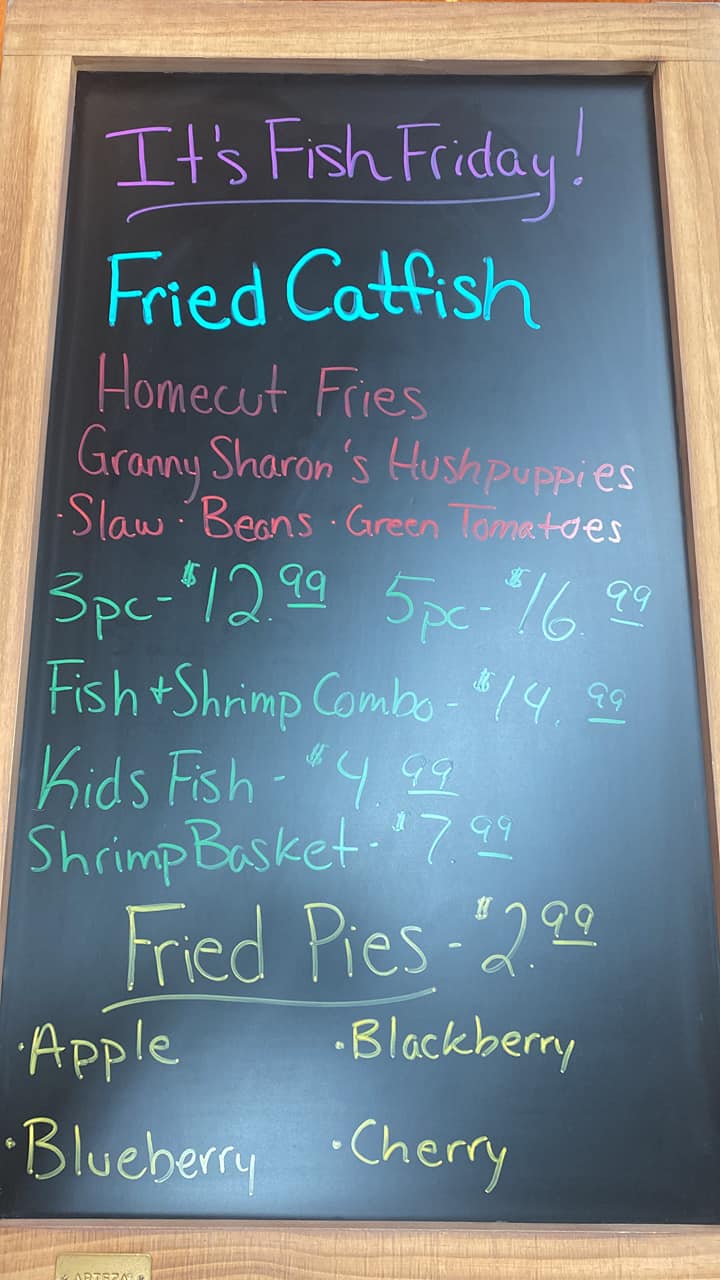 It's Fish Friday!
Fried Catfish
Homecut Fries
Granny Sharon's Hushpuppies
·Slaw · Beans · Green Tomatoes
3pc-$12.99 5pc-$16.99
Fish+Shrimp Combo-$14.99
Kids Fish-$4.99
Shrimp Basket-$7.99
Fried Pies-$2.99
·Apple ·Blackberry
·Blueberry ·Cherry
ARTEZA